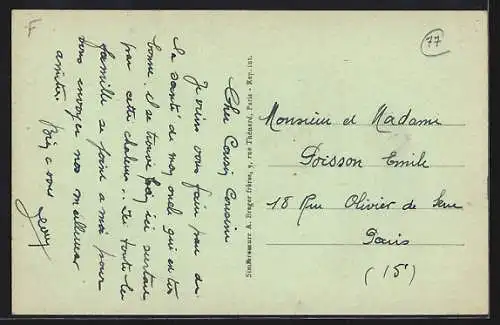 77
Cher Cousin Cousine
Je viens vous faire part de
la santé de mon oncle qui est très
bonne. il se trouve bien ici surtout
par cette chaleur. Ici toute la
famille se joint a moi pour
vous envoyer nos meilleures
amitiés
Bien a vous
rue Thénard, Paris - Rep. int.
Monsieur et Madame
Poisson Emile
18 Rue Olivier de Serre
Paris
(15e)